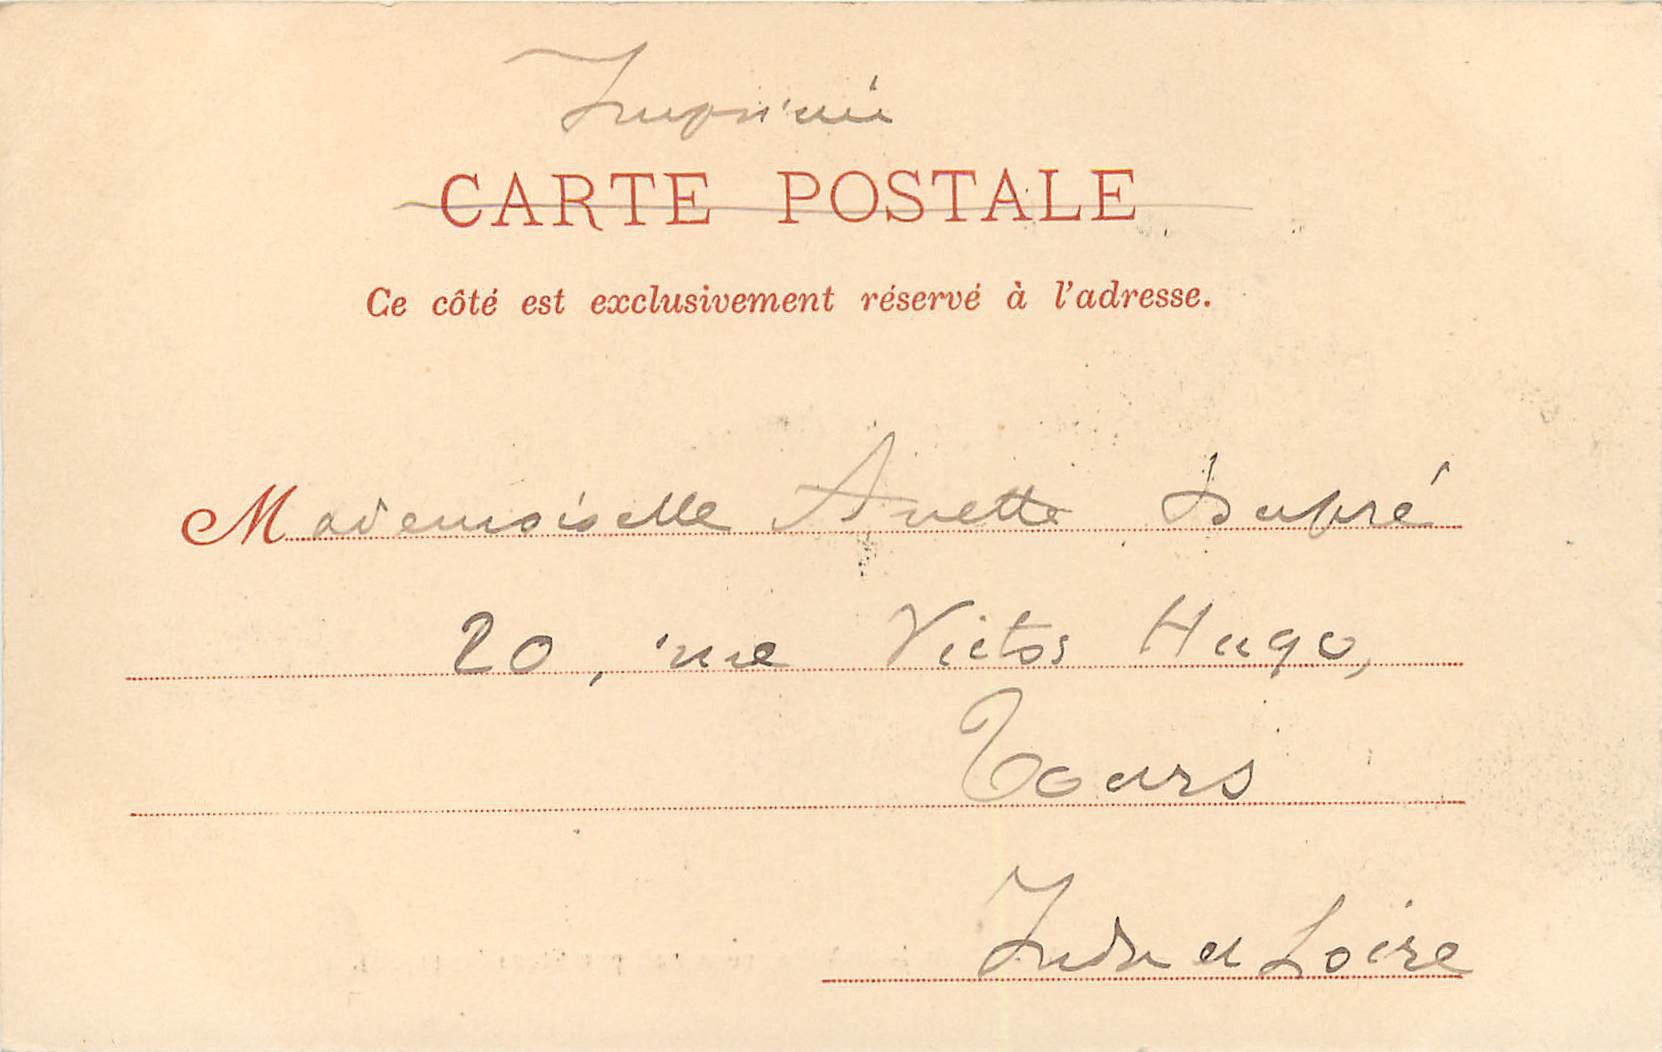 Imprimé
CARTE POSTALE
Ce côté est exclusivement réservé à l'adresse.
Mademoiselle Anette Dupré
20, rue Victor Hugo,
Tours
Indre et Loire